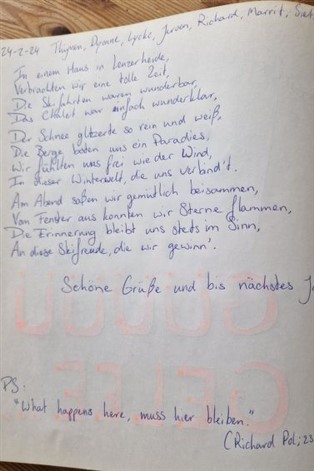 24-2-24 Thijmen, Dyonne, Lycke, Jeroen, Richard, Marrit, 
In einem Haus in Lenzerheide,
Verbrachten wir eine tolle Zeit,
Die Skifahrten waren wunderbar,
Das Chalet war einfach wunderklar,
Der Schnee glitzerte so rein und weiß,
Die Berge boten uns ein Paradies,
Wir fühlten uns frei wie der Wind,
In dieser Winterwelt, die uns verbind't.
Am Abend saßen wir gemütlich beisammen,
Vom Fenster aus konnten wir Sterne flammen,
Die Erinnerung bleibt uns stets im Sinn,
An diese Skifreude, die wir gewinn'.
Schöne Grüße und bis nächstes J
PS:
"What happens here, muss hier bleiben."
(Richard Pol; 23